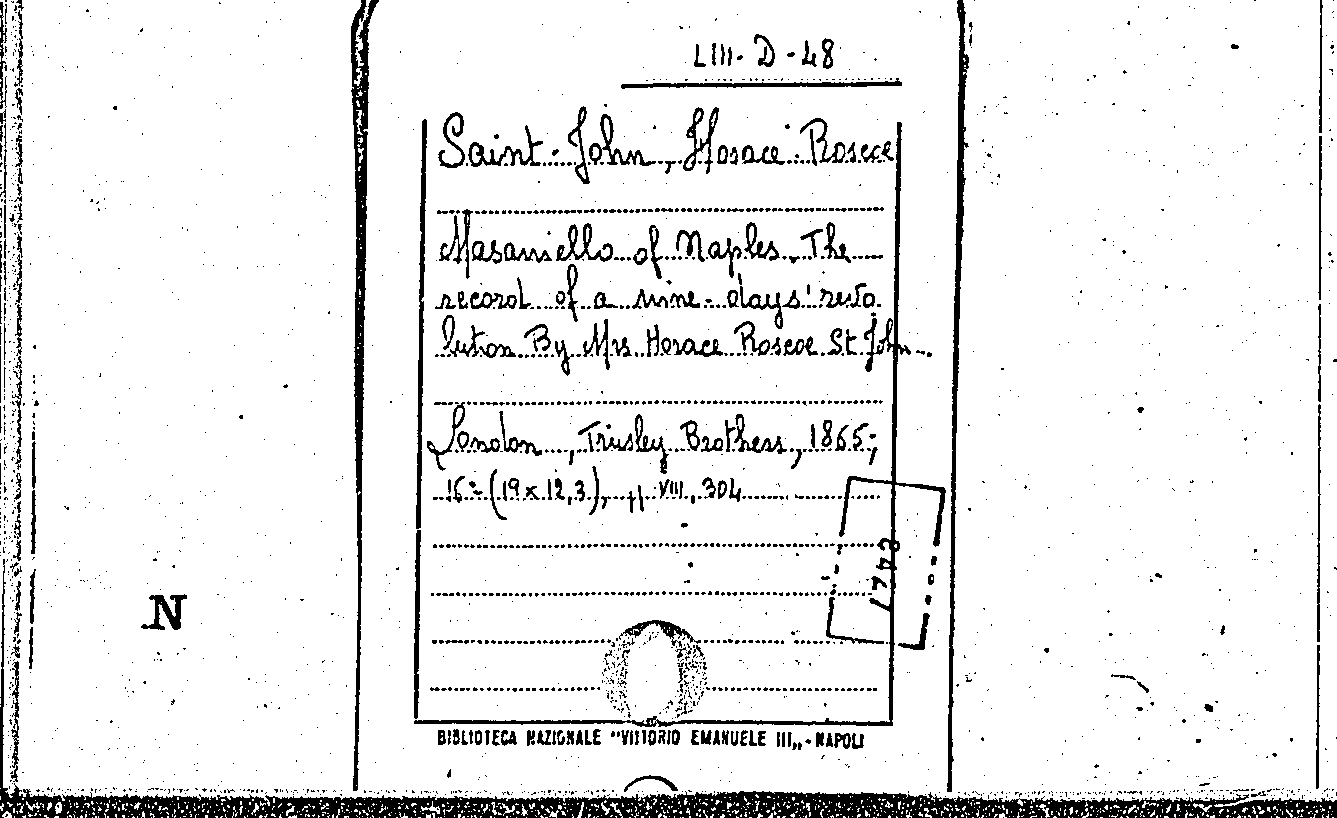 LIII-D-48
Saint-John, Horace Roscce
Masaniello of Naples. The
record of a nine-days' revo
lution By Mrs Horace Roscoe St John
London, Trusley Brothers, 1865;
16° (19 x 12,3), VIII, 304
2447
N
BIBLIOTECA NAZIONALE "VITTORIO EMANUELE III„ - NAPOLI